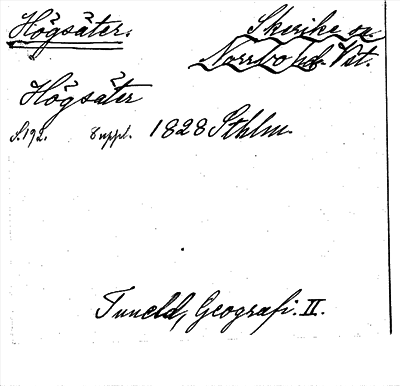 Högsäter. Skerike sn.
Norrbo hd. Vst.
Högsäter
s. 192. Suppl. 1828 Sthlm.
Tuneld, Geografi. II.